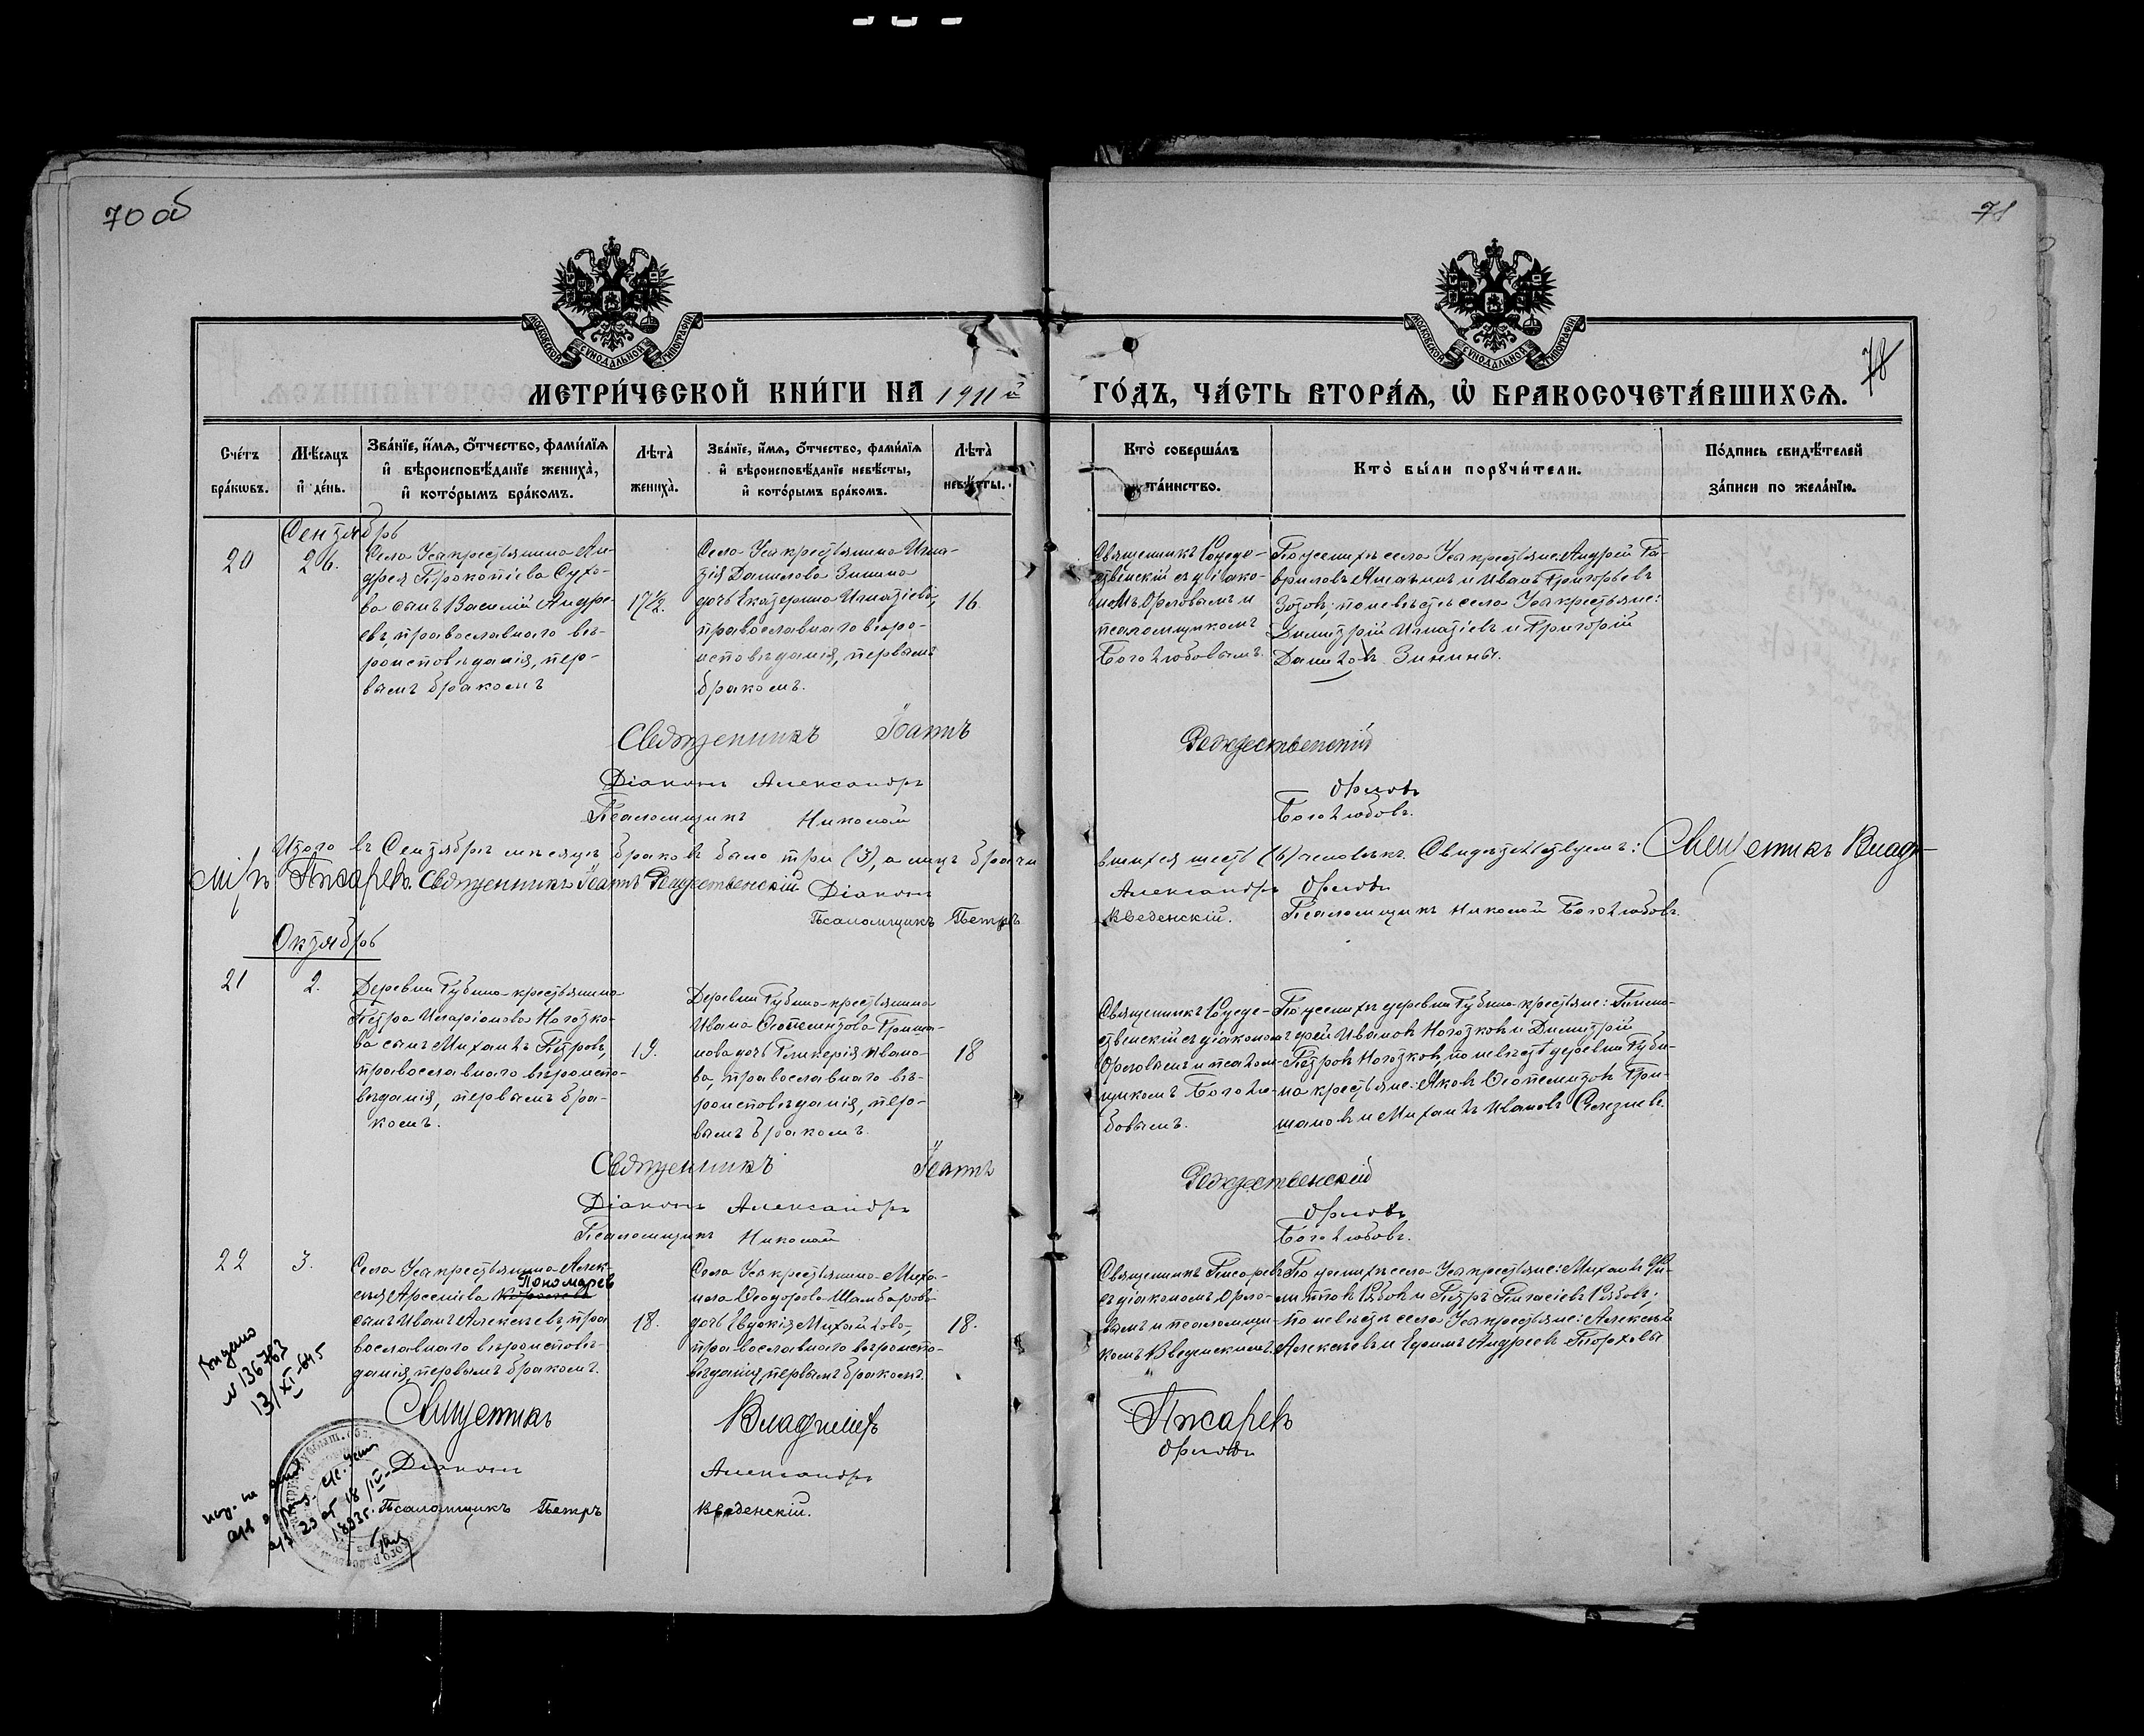 70 об
71
МОСКОВСКОЙ СУНОДАЛЬНОЙ ТИПОГРАФІИ
МОСКОВСКОЙ СУНОДАЛЬНОЙ ТИПОГРАФІИ
78
МЕТРИ́ЧЕСКОЙ КНИ́ГИ НА 1911й ГО́ДЪ, ЧА́СТЬ ВТОРА́Ѧ, Ѽ БРАКОСОЧЕТА́ВШИХСѦ.
Сче́тъ бра́кѡвъ.
Мѣ́сяцъ и҆ де́нь.
Зва́нїе, и҆́мѧ, ѻ҆́тчество, фами́лїѧ и҆ вѣроисповѣ́данїе жениха̀, и҆ кото́рымъ бра́комъ.
Лѣта̀ жениха̀.
Зва́нїе, и҆́мѧ, ѻ҆́тчество, фами́лїѧ и҆ вѣроисповѣ́данїе невѣ́сты, и҆ кото́рымъ бра́комъ.
Лѣта̀ невѣ́сты.
Кто̀ соверша́лъ та́инство.
Кто̀ бы́ли порꙋчи́тели.
По́дпись свидѣ́телей за́писи по жела́нїю.
Сентябрь
20
26.
Села Уса крестьянина Ан-
дрея Прокопіева Сухо-
ва сынъ Василій Андре-
евъ, православнаго вѣ-
роисповѣданія, пер-
вымъ бракомъ
17½.
Села Усы крестьянина Игна-
тія Данилова Зинина
дочь Екатерина Игнатіева,
православнаго вѣро-
исповѣданія, первымъ
бракомъ.
16.
Священникъ Рождe-
ственскій съ діако-
номъ Орловымъ и
псаломщикомъ
Боголюбовымъ.
По женихѣ села Усы крестьяне: Андрей Га-
вриловъ и Иванъ Григорьевъ
Зотов; по невѣстѣ села Усы крестьяне:
Димитрій Игнатіевъ и Григорій
Даниловъ Зинины.
Священникъ Іоаннъ Рождественскій
Діаконъ Александръ Орловъ
Псаломщикъ Николай Боголюбовъ.
Итого въ Сентябрѣ мѣсяцѣ браковъ было три (3), а лицъ брачи
вшихся шесть (6) человѣкъ. Свидѣтельствуемъ: Священникъ Влади-
міръ Писаревъ. Священникъ Іоаннъ Рождественскій Діаконъ Александръ Орловъ
Псаломщикъ Петръ Введенскій. Псаломщикъ Николай Боголюбовъ.
Октябрь
21
2.
Деревни Губина крестьянина
Петра Иларіонова Ноготко-
ва сынъ Михаилъ Петровъ,
православнаго вѣроиспо-
вѣданія, первымъ бра-
комъ.
19.
Деревни Губина крестьянина
Ивана Филиппова Гриша-
нова дочь Гликерія Ивано-
ва, православнаго вѣ-
роисповѣданія, пер-
вымъ бракомъ.
18
Священникъ Рожде-
ственскій съ діакономъ
Орловымъ и псалом-
щикомъ Боголю-
бовымъ.
По женихѣ деревни Губина крестьяне:
Ивановъ Ноготковъ и Димитрій
Петровъ Ноготковъ; по невѣстѣ деревни Губи-
на крестьяне: Яковъ Гри-
шановъ и Михаилъ Ивановъ
Священникъ Іоаннъ Рождественскій
Діаконъ Александръ Орловъ
Псаломщикъ Николай Боголюбовъ.
22
3.
Села Усы крестьянина Алек-
сія Арсеніева Пономарев
сынъ Иванъ Алексѣевъ, пра
вославнаго вѣроисповѣ-
данія, первымъ бракомъ.
18.
Села Усы крестьянина Миха-
ила Ѳеодорова Шамбаровъ
дочь Евдокія Михайлова,
православнаго вѣроиспо-
вѣданія, первымъ бракомъ.
18.
Священникъ Писаревъ
съ діакономъ Орло-
вымъ и псаломщи-
комъ Введенскимъ.
По женихѣ села Усы крестьяне: Михаилъ Фи-
липповъ Рябовъ и Петръ Рябовъ;
по невѣстѣ села Усы крестьяне: Алексѣй
Алексѣевъ и Ефимъ Андреевъ
Священникъ Владиміръ Писаревъ
Діаконъ Александръ Орловъ
Псаломщикъ Петръ Введенскій.
Выдано
№ 136763
13/XI-645